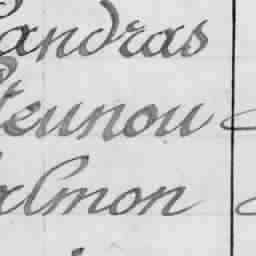 Landras
Steunou
Salmon